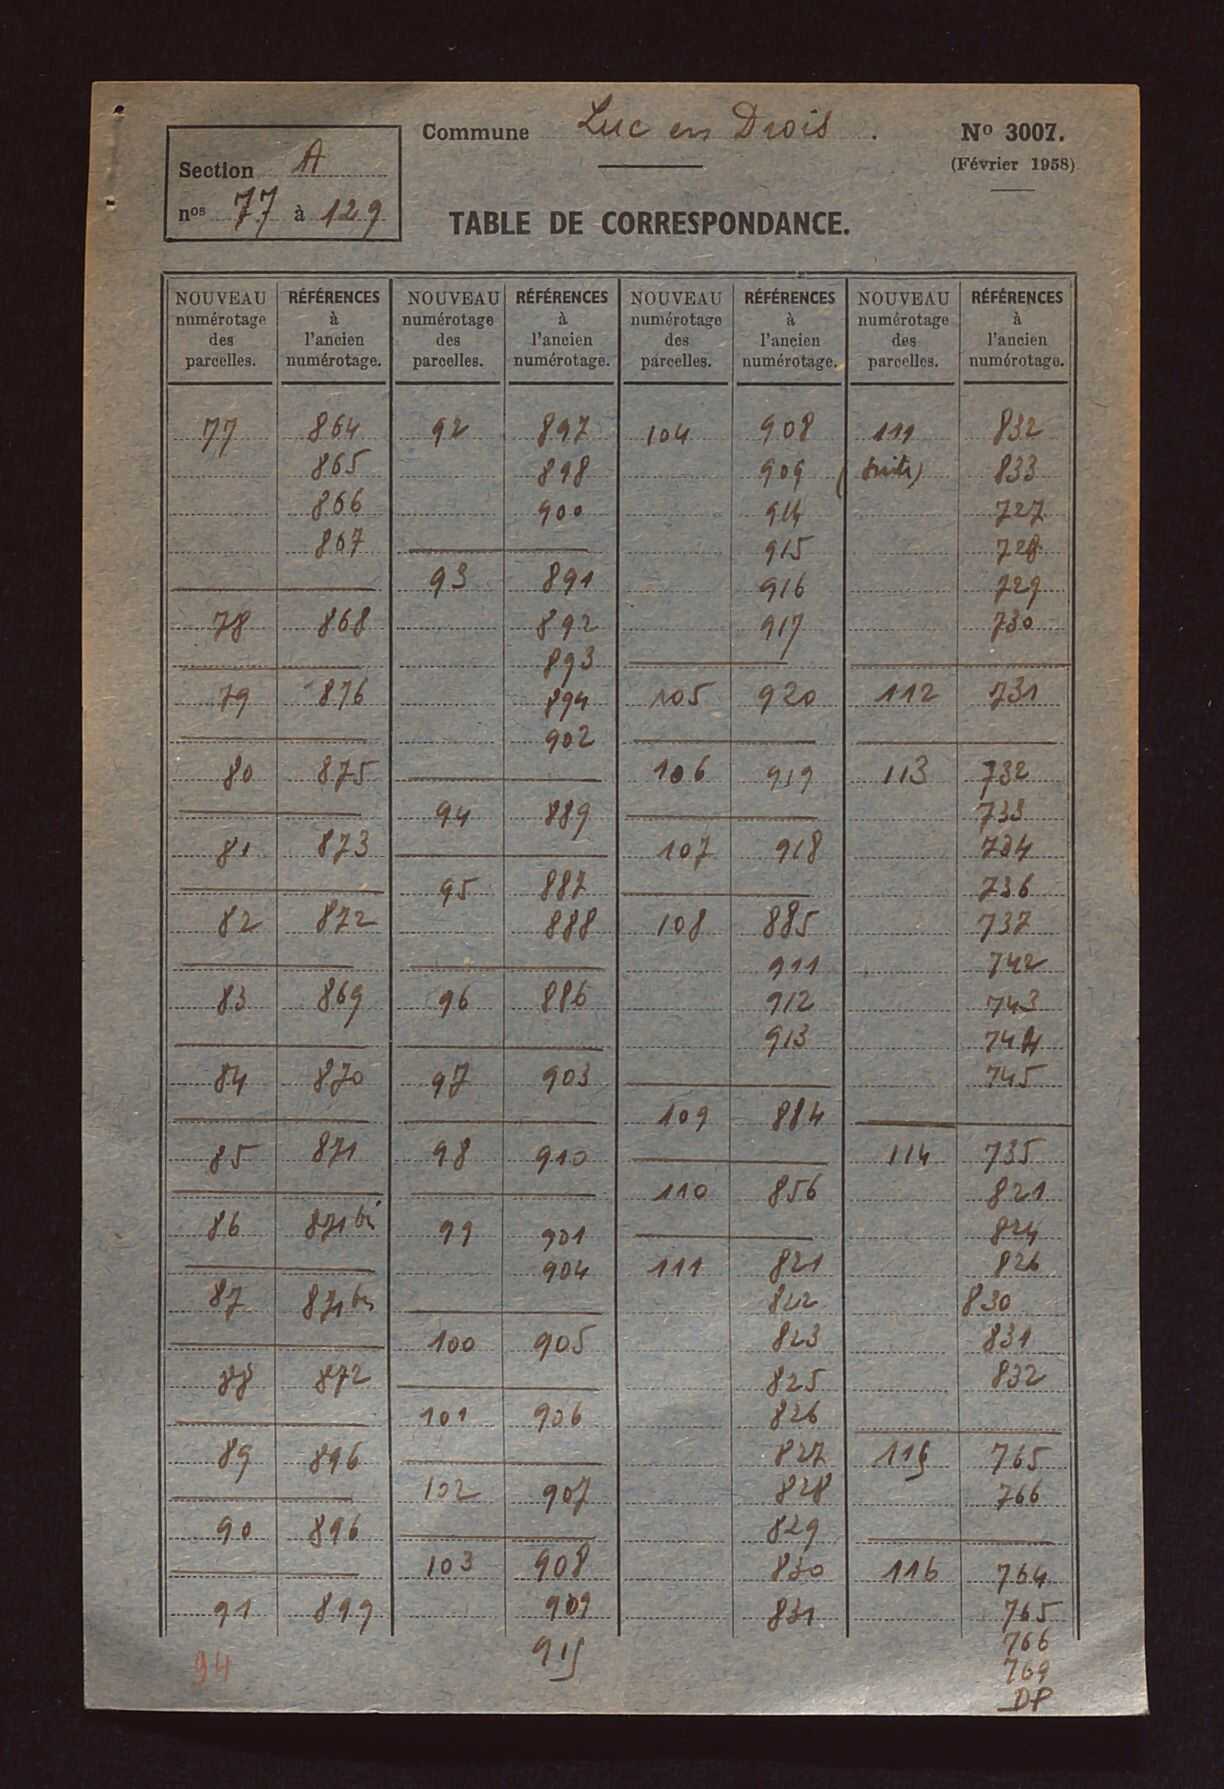 Commune Luc en Diois .
Nº 3007.
(Février 1958)
Section A
nos 77 à 129
TABLE DE CORRESPONDANCE.
NOUVEAU numérotage des parcelles. RÉFÉRENCES à l'ancien numérotage.
77 864
865
866
867
78 868
79 876
80 875
81 873
82 872
83 869
84 870
85 871
86 871 bis
87 871 bis
88 872
89 896
90 896
91 899
94
NOUVEAU numérotage des parcelles. RÉFÉRENCES à l'ancien numérotage.
92 897
898
900
93 891
892
893
894
902
94 889
95 887
888
96 886
97 903
98 910
99 901
904
100 905
101 906
102 907
103 908
909
915
NOUVEAU numérotage des parcelles. RÉFÉRENCES à l'ancien numérotage.
104 908
909
914
915
916
917
105 920
106 919
107 918
108 885
911
912
913
109 884
110 856
111 821
822
823
825
826
827
828
829
830
831
NOUVEAU numérotage des parcelles. RÉFÉRENCES à l'ancien numérotage.
111 832
(suite) 833
727
728
729
730
112 731
113 732
733
734
736
737
742
743
744
745
114 735
821
824
826
830
831
832
115 765
766
116 764
765
766
769
DP